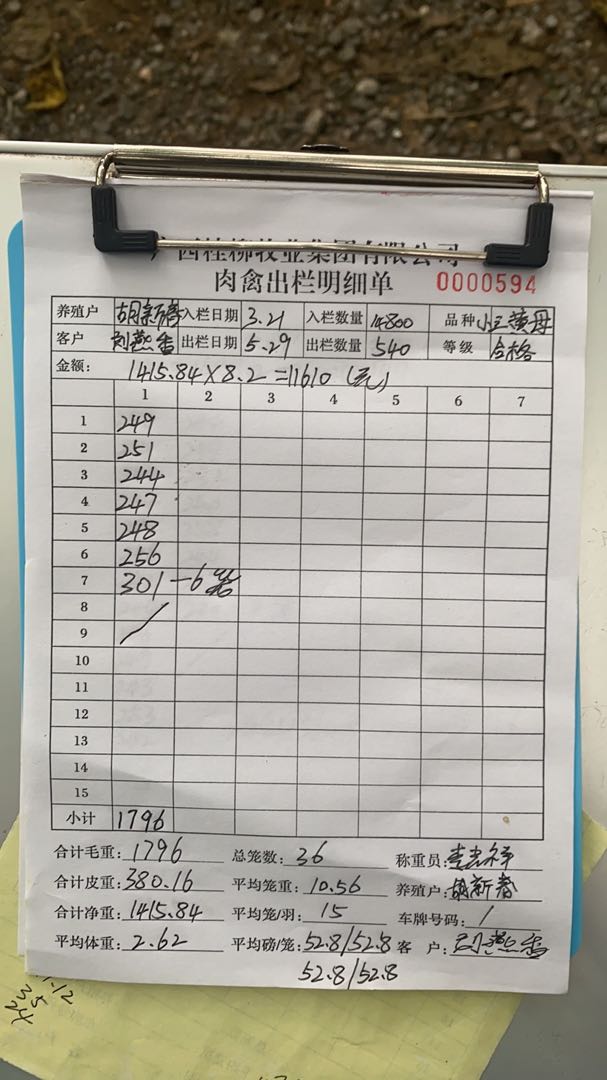 广西桂柳牧业集团有限公司
肉禽出栏明细单 0000594
养殖户 胡新春 入栏日期 3.21 入栏数量 14800 品种 小三黄母
客户 刘燕香 出栏日期 5.29 出栏数量 540 等级 合格
金额: 1415.84×8.2=11610(元)
1 2 3 4 5 6 7
1 249
2 251
3 244
4 247
5 248
6 256
7 301-6笼
8
9
10
11
12
13
14
15
小计 1796
合计毛重: 1796 总笼数: 36 称重员:
合计皮重: 380.16 平均笼重: 10.56 养殖户: 胡新春
合计净重: 1415.84 平均笼/羽: 15 车牌号码: /
平均体重: 2.62 平均磅/笼: 52.8/52.8 客 户: 刘燕香
52.8/52.8